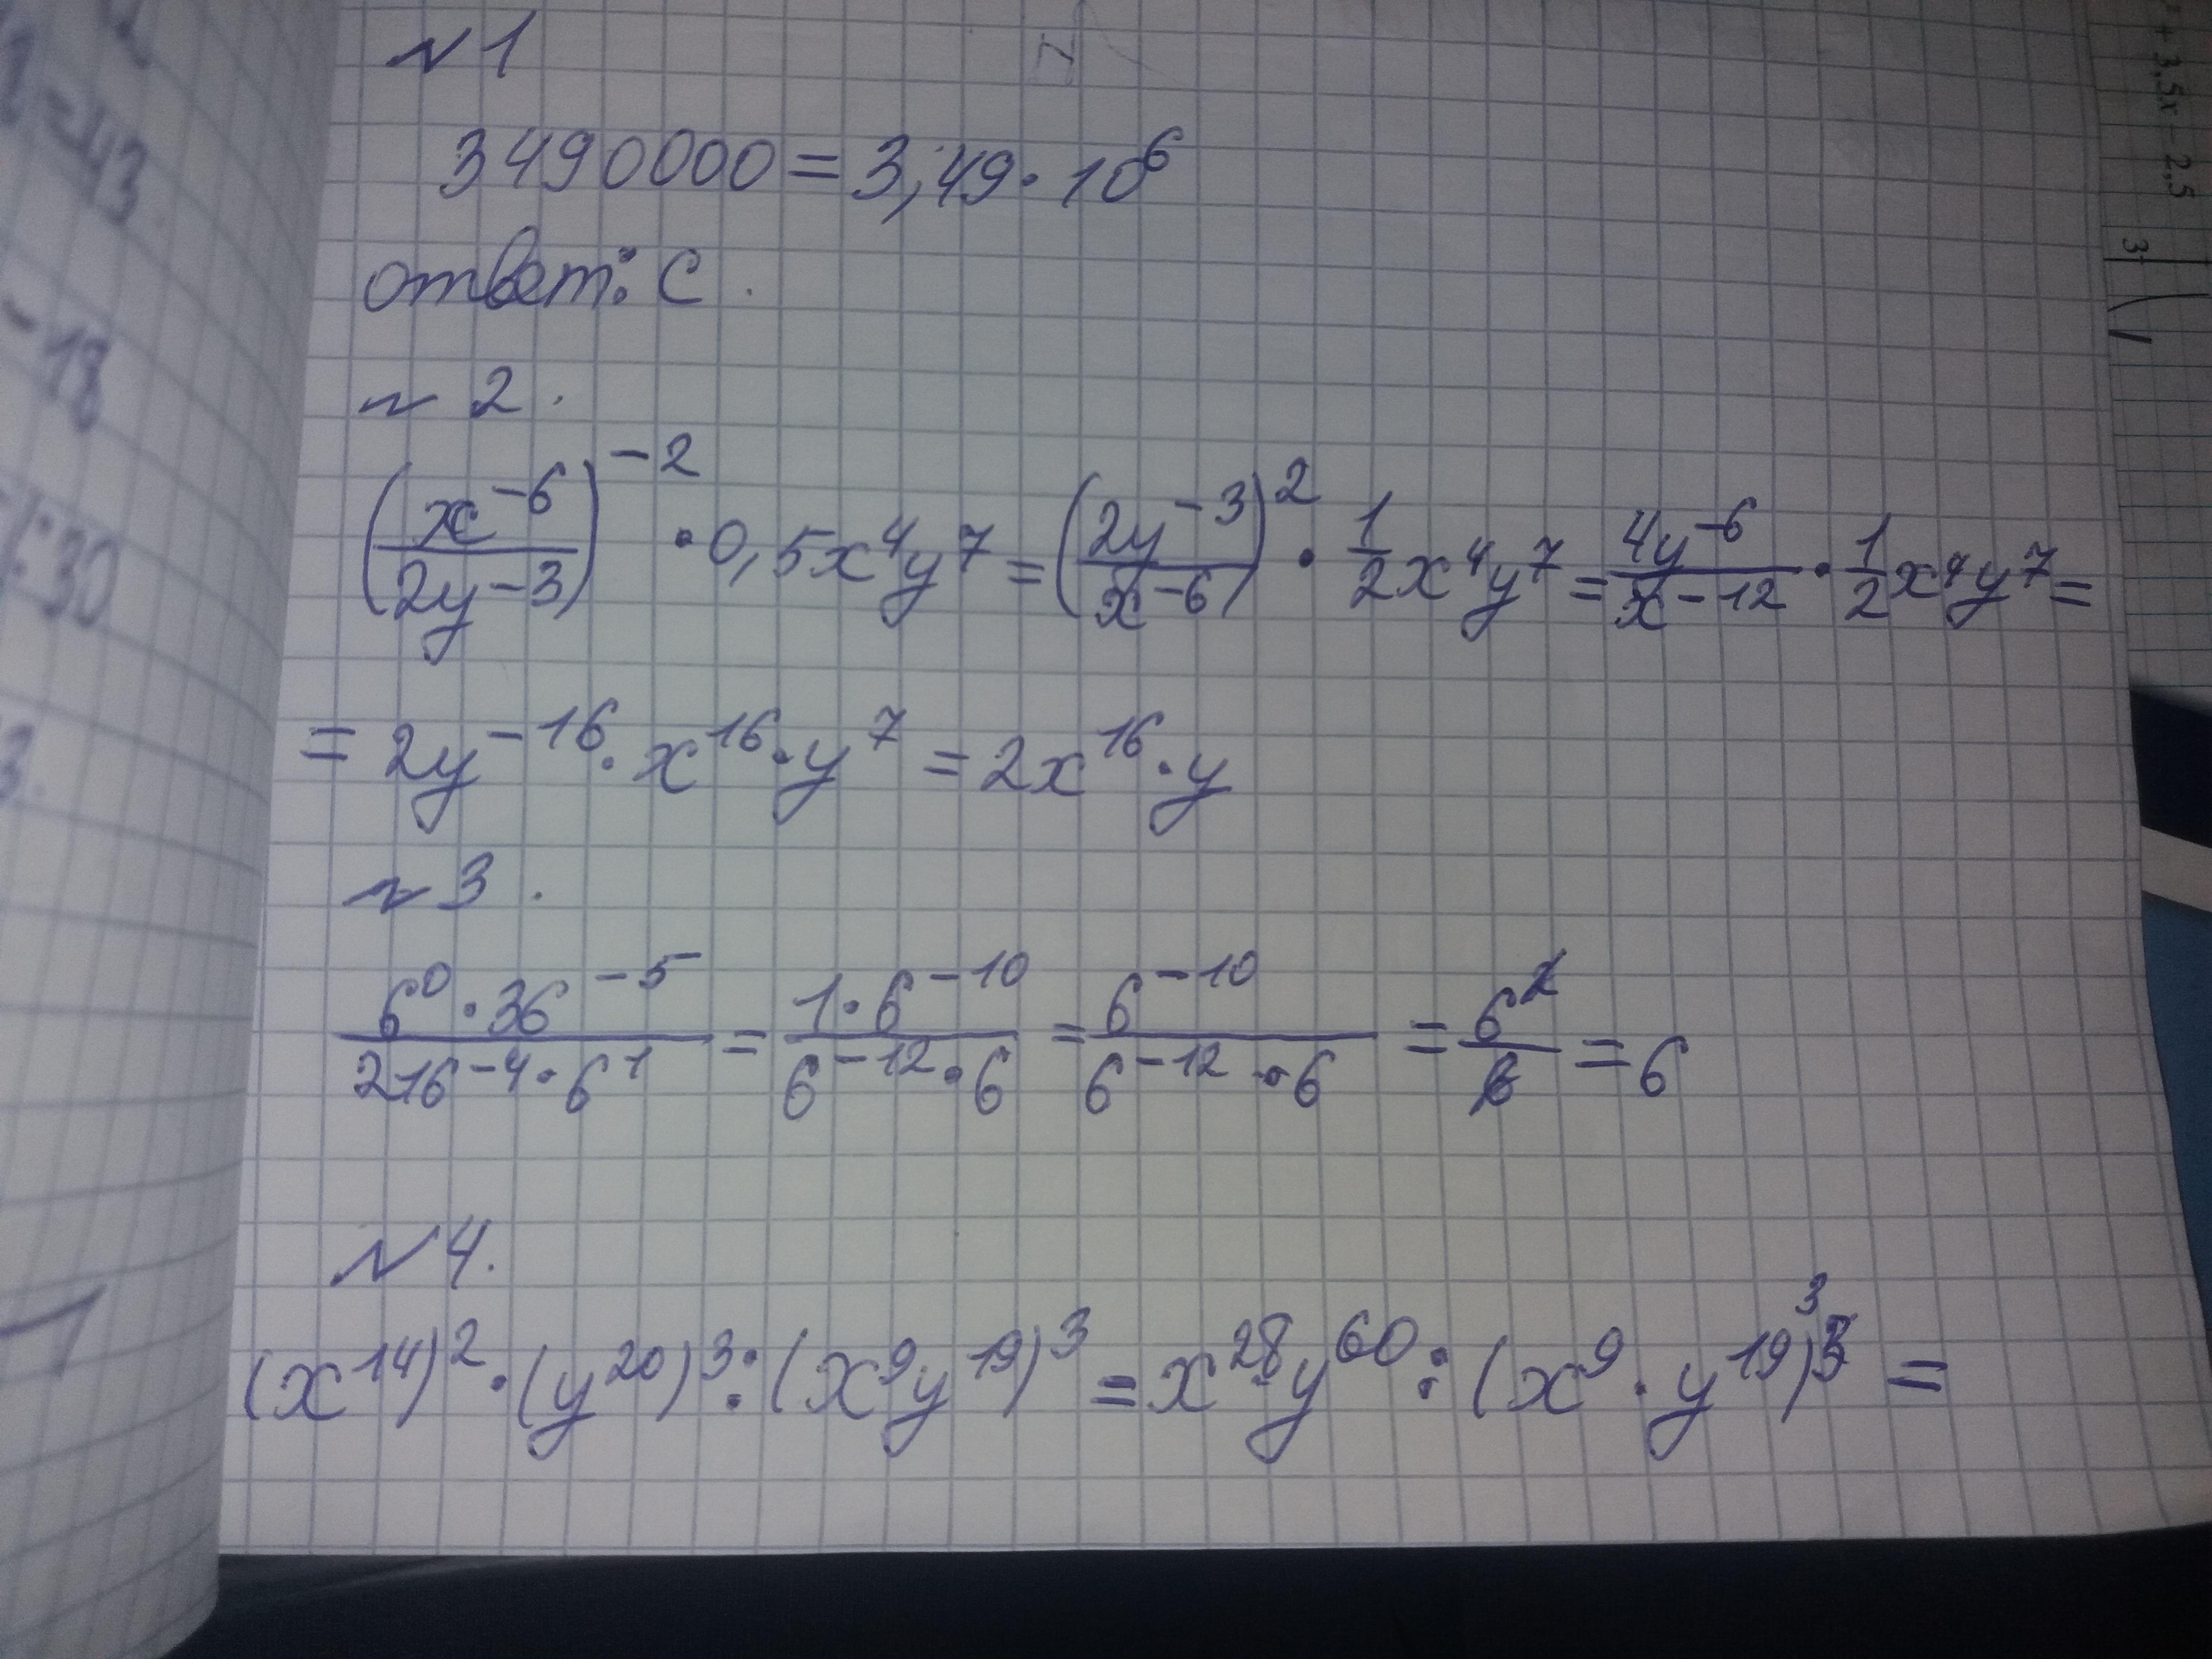 №1
3490000 = 3,49 · 10⁶
ответ: С.
№2.
(x⁻⁶/2y⁻³)⁻² · 0,5x⁴y⁷ = (2y⁻³/x⁻⁶)² · 1/2 x⁴y⁷ = 4y⁻⁶/x⁻¹² · 1/2 x⁴y⁷ =
= 2y⁻¹⁶ · x¹⁶ · y⁷ = 2x¹⁶ · y
№3.
6⁰ · 36⁻⁵/216⁻⁴ · 6¹ = 1 · 6⁻¹⁰/6⁻¹² · 6 = 6⁻¹⁰/6⁻¹² · 6 = 6²/6 = 6
№4.
(x¹⁴)² · (y²⁰)³ : (x⁹y¹⁹)³ = x²⁸ · y⁶⁰ : (x⁹ · y¹⁹)³ =
+ 3,5x - 2,5
= 43
- 18
: 30
3.